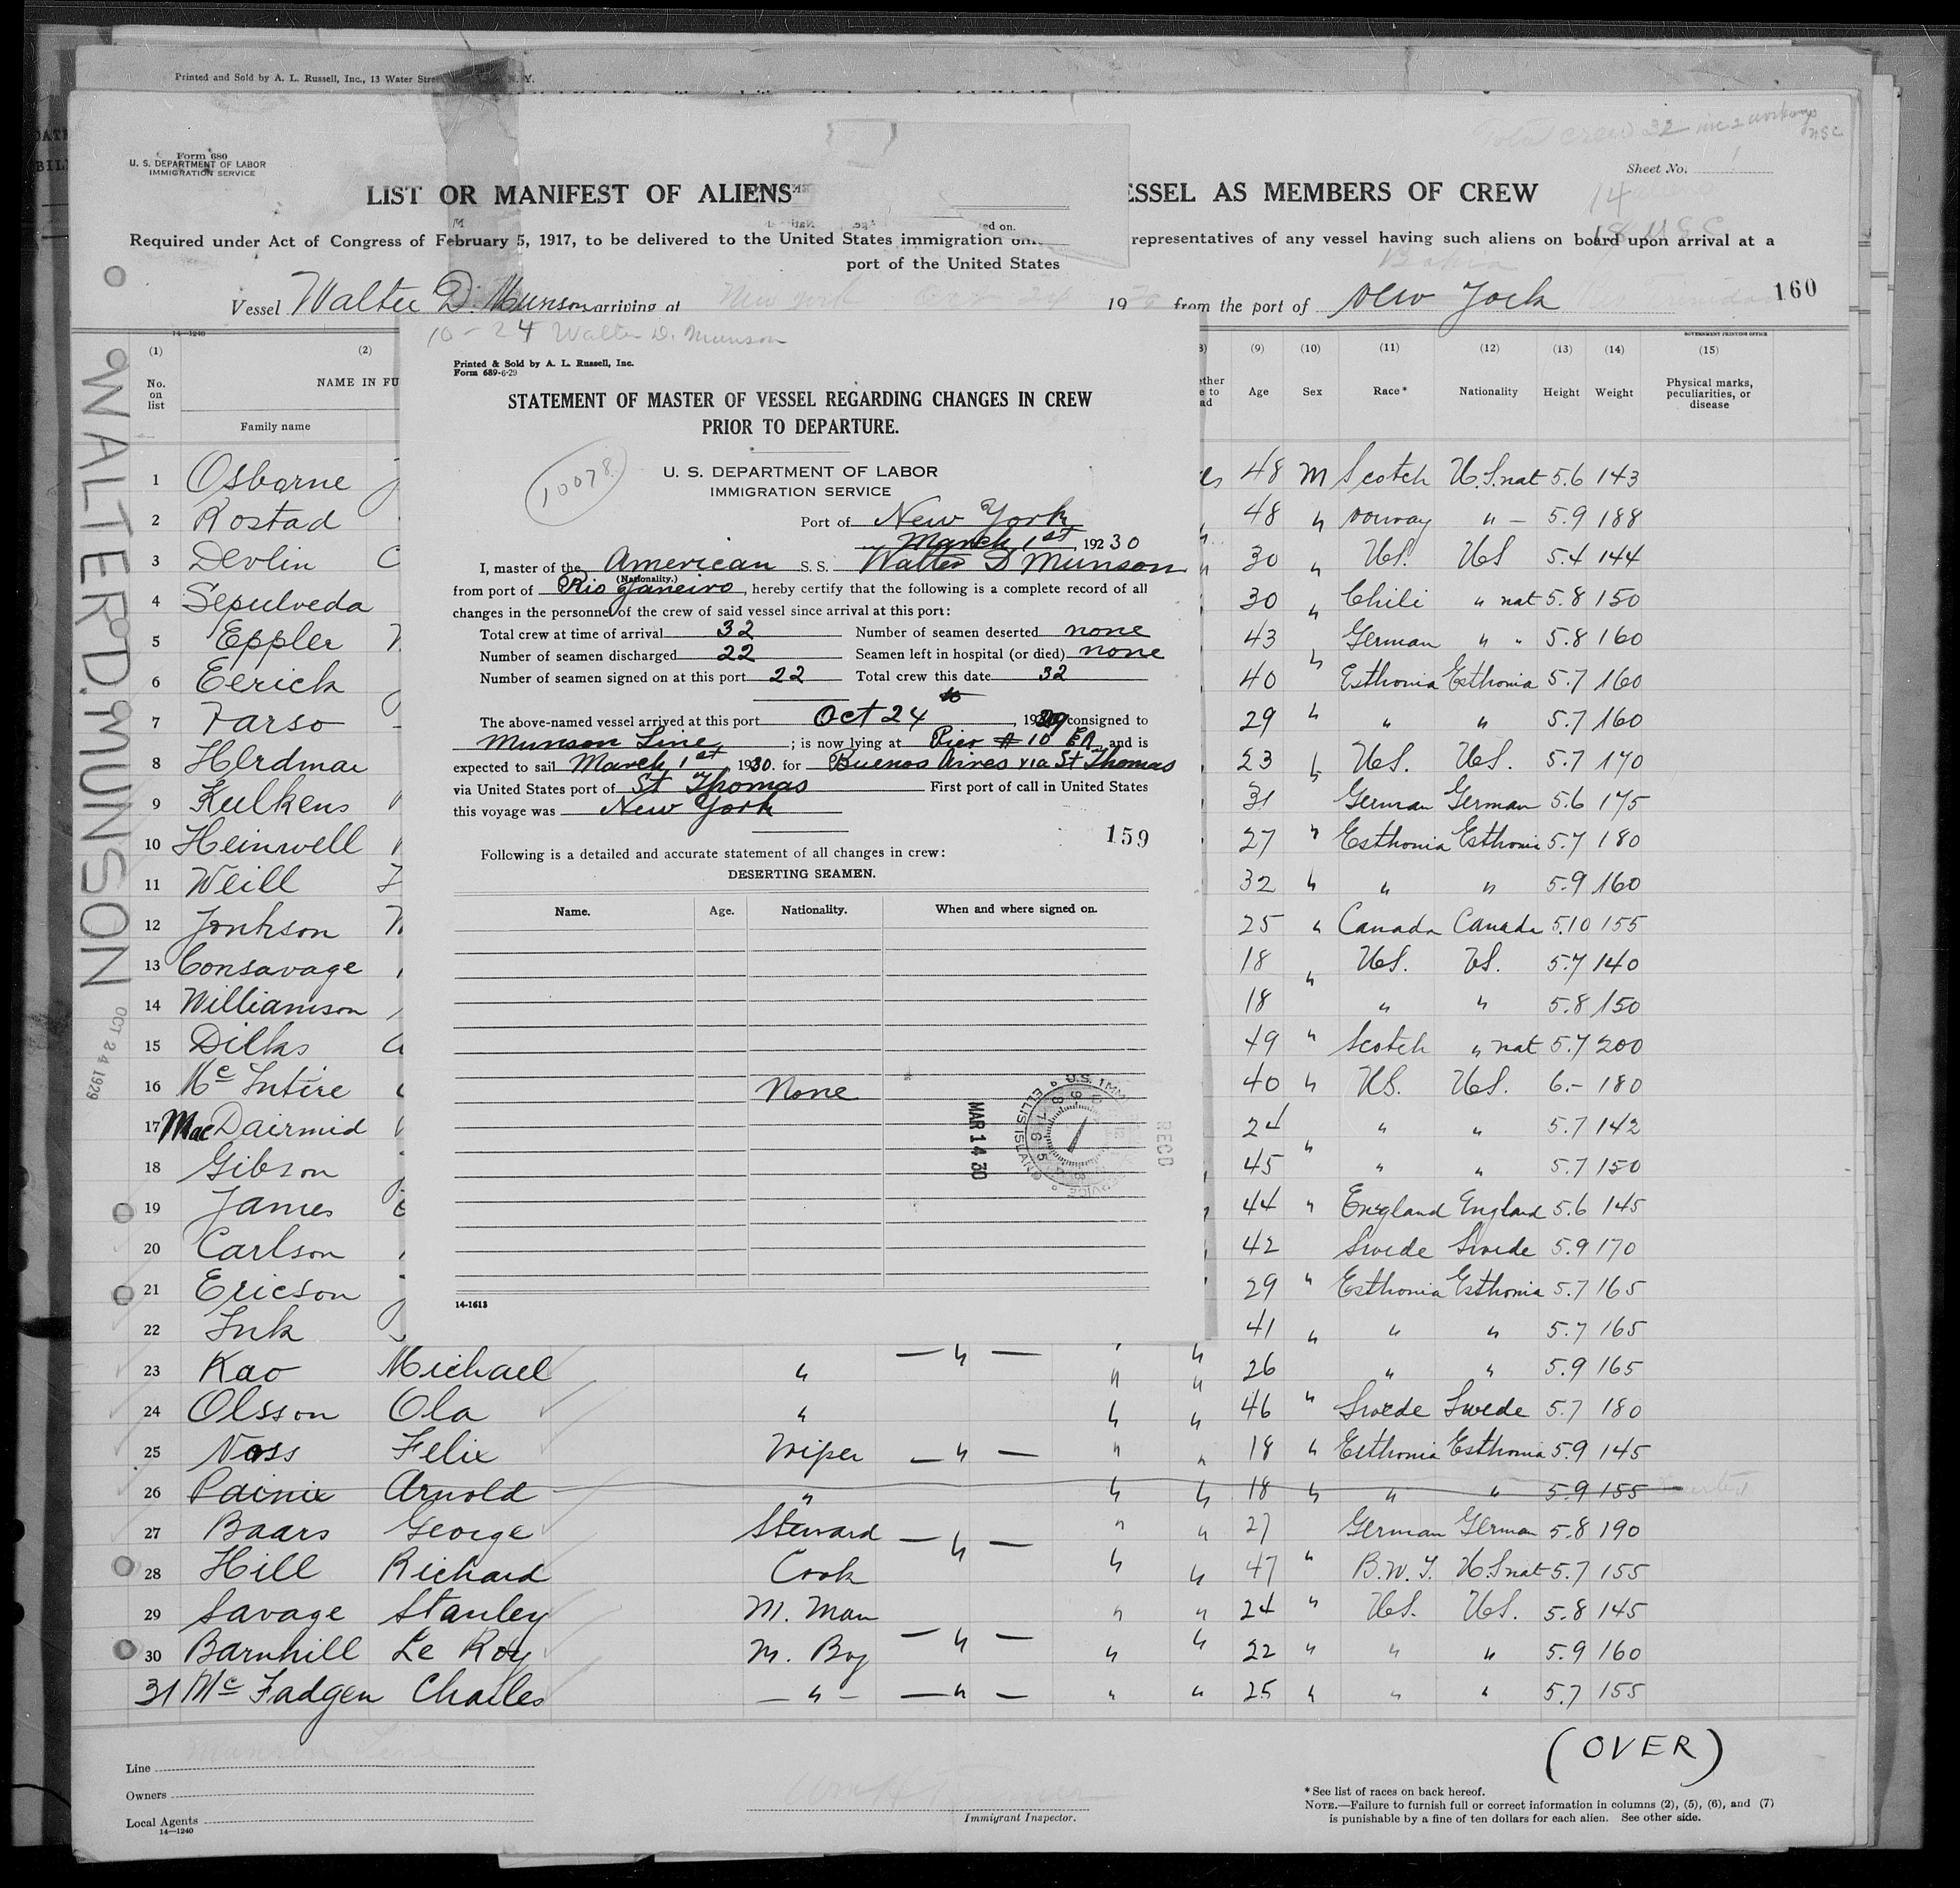 Printed and Sold by A. L. Russell, Inc., 13 Water Stre N. Y.
Total crew 32 inc 2 workaways
NSC
Form 680
U. S. DEPARTMENT OF LABOR
IMMIGRATION SERVICE
Sheet No. 1
LIST OR MANIFEST OF ALIENS ESSEL AS MEMBERS OF CREW
14
ed on.
Required under Act of Congress of February 5, 1917, to be delivered to the United States immigration representatives of any vessel having such aliens on board upon arrival at a
port of the United States
Bahia
160
Vessel Walter D. Munson arriving at New York Oct 24 19 from the port of New York Trinidad
14-1240
GOVERNMENT PRINTING OFFICE
WALTER D. MUNSON
OCT 24 1929
(1) (2) (9) (10) (11) (12) (13) (14) (15)
No. on list NAME IN FU Age Sex Race* Nationality Height Weight Physical marks, peculiarities, or disease
Family name
1 Osborne 48 M Scotch U.S. nat 5.6 143
2 Rostad 48 " Norway " - 5.9 188
3 Devlin C 30 " U.S. US 5.4 144
4 Sepulveda 30 " Chili " nat 5.8 150
5 Eppler 43 German " " 5.8 160
6 Eerick 40 " Esthonia Esthonia 5.7 160
7 Farso 29 " " " 5.7 160
8 Herdmar 23 " U.S. U.S. 5.7 170
9 Kulkens 31 German German 5.6 175
10 Heinwell 27 " Esthonia Esthonia 5.7 180
11 Weill 32 " " " 5.9 160
12 Jonhson 25 " Canada Canada 5.10 155
13 Consavage 18 " U.S. US. 5.7 140
14 Williamson 18 " " 5.8 150
15 Dilks 49 " Scotch " nat 5.7 200
16 Mc Intire 40 " US. US. 6.- 180
17 MacDairmid 24 " " " 5.7 142
18 Gibson 45 " " " 5.7 150
19 James 44 " England England 5.6 145
20 Carlson 42 Swede Swede 5.9 170
21 Ericson 29 " Esthonia Esthonia 5.7 165
22 Ink 41 " " " 5.7 165
23 Kao Michael " — " — " " 26 " " 5.9 165
24 Olsson Ola " " " 46 " Swede Swede 5.7 180
25 Noss Felix Wiper — " — " " 18 " Esthonia Esthonia 5.9 145
26 Painix Arnold " " " 18 " " " 5.9 155
27 Baars George Steward — " — " " 27 German German 5.8 190
28 Hill Richard Cook " " 47 " B.W.I. U.S nat 5.7 155
29 Savage Stanley M. Man " " 24 " US. US. 5.8 145
30 Barnhill Le Roy M. Boy — " — " " 22 " " " 5.9 160
31 Mc Fadgen Charles - " - — " — " " 25 " " " 5.7 155
(OVER)
Line Munson Line
Owners
Local Agents
14-1240
Immigrant Inspector.
* See list of races on back hereof.
NOTE.—Failure to furnish full or correct information in columns (2), (5), (6), and (7)
is punishable by a fine of ten dollars for each alien. See other side.
10-24 Walter D. Munson
Printed & Sold by A. L. Russell, Inc.
Form 689-6-29
STATEMENT OF MASTER OF VESSEL REGARDING CHANGES IN CREW
PRIOR TO DEPARTURE.
10078
U. S. DEPARTMENT OF LABOR
IMMIGRATION SERVICE
Port of New York
March 1st, 192 30
I, master of the American S. S. Walter D Munson
(Nationality.)
from port of Rio Janeiro, hereby certify that the following is a complete record of all
changes in the personnel of the crew of said vessel since arrival at this port:
Total crew at time of arrival 32 Number of seamen deserted none
Number of seamen discharged 22 Seamen left in hospital (or died) none
Number of seamen signed on at this port 22 Total crew this date 32
The above-named vessel arrived at this port Oct 24, 1929 consigned to
Munson Line; is now lying at Pier # 10 ER and is
expected to sail March 1st, 1930. for Buenos Aires via St Thomas
via United States port of St Thomas First port of call in United States
this voyage was New York
159
Following is a detailed and accurate statement of all changes in crew:
DESERTING SEAMEN.
Name. Age. Nationality. When and where signed on.
None
MAR 14 30
ELLIS ISLAND
RECD
14-1613